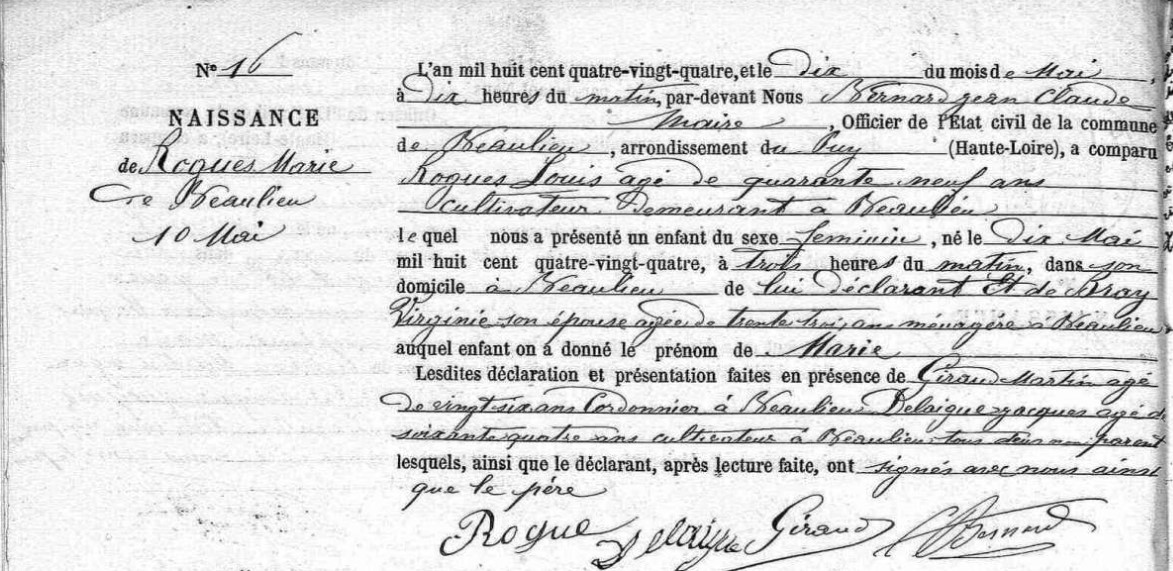 N° 16
NAISSANCE
de Roques Marie
De Beaulieu
10 Mai
L'an mil huit cent quatre-vingt-quatre, et le Dix du mois de Mai,
à Dix heures du matin, par-devant Nous Bernard Jean Claude
Maire, Officier de l'Etat civil de la commune
de Beaulieu, arrondissement du Puy (Haute-Loire), a comparu
Roques Louis agé de quarante neuf ans
cultivateur Demeurant à Beaulieu
lequel nous a présenté un enfant du sexe feminin, né le Dix Mai
mil huit cent quatre-vingt-quatre, à trois heures du matin, dans son
domicile à Beaulieu de lui déclarant Et de Bray
Virginie son épouse agée de trente trois ans ménagère à Beaulieu
auquel enfant on a donné le prénom de Marie
Lesdites déclaration et présentation faites en présence de Giraud Martin agé
De vingt six ans Cordonnier à Beaulieu Delaigue Jacques agé d
soixante quatre ans cultivateur à Beaulieu tous deux non parent
lesquels, ainsi que le déclarant, après lecture faite, ont signés avec nous ainsi
que le père
Rogue Delaigue Giraud Bernard